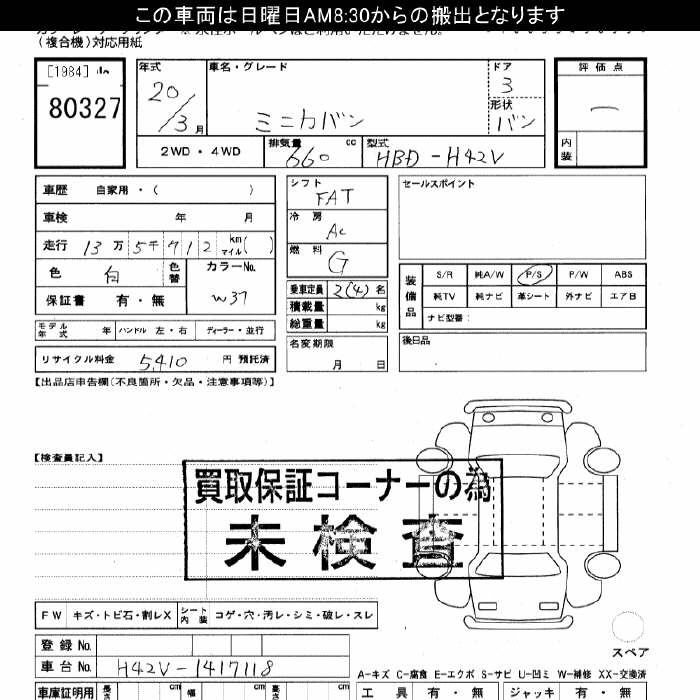 この車両は日曜日AM8:30からの搬出となります
(複合機)対応用紙
[1984]
80327
年式
20/3月
車名・グレード
ミニカバン
ドア
3
形状
バン
評価点
内装
2WD・4WD
排気量 660 cc
型式 HBD-H42V
車歴 自家用・( )
車検 年 月
走行 13万5千912 km マイル( )
色 白 色替
カラーNo. W37
保証書 有・無
モデル年式 年 ハンドル 左・右 ディーラー・並行
リサイクル料金 5,410 円 預託済
シフト FAT
冷房 AC
燃料 G
乗車定員 2(4) 名
積載量 kg
総重量 kg
名変期限 月 日
セールスポイント
装備品
S/R 純A/W P/S P/W ABS
純TV 純ナビ 革シート 外ナビ エアB
ナビ型番:
後日品
【出品店申告欄(不良箇所・欠品・注意事項等)】
【検査員記入】
買取保証コーナーの為
未検査
FW キズ・トビ石・割レX シート内装 コゲ・穴・汚レ・シミ・破レ・スレ
スペア
登録No.
車台No. H42V-1417118
A-キズ C-腐食 E-エクボ S-サビ U-凹ミ W-補修 XX-交換済
車庫証明用 長さ cm 幅 cm 高さ cm
工具 有・無 ジャッキ 有・無